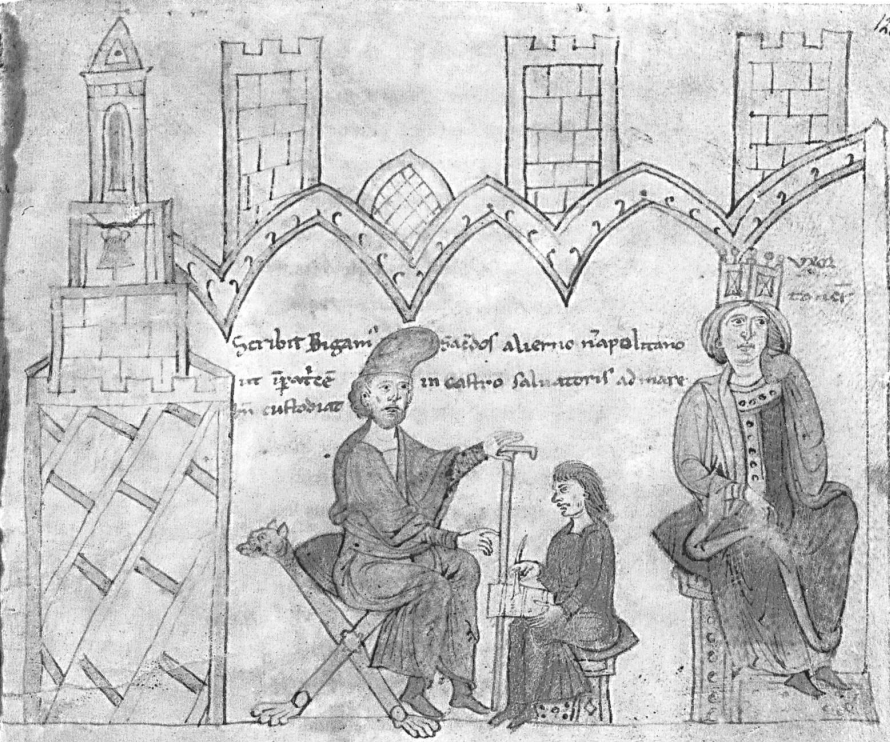 Scribit Bigam᾽ Sac̄dos alierno n̄apolitano
ut īpatⁱcē in castro salvatoris ad mare
bn̄ custodiat
uxor
tancr̄